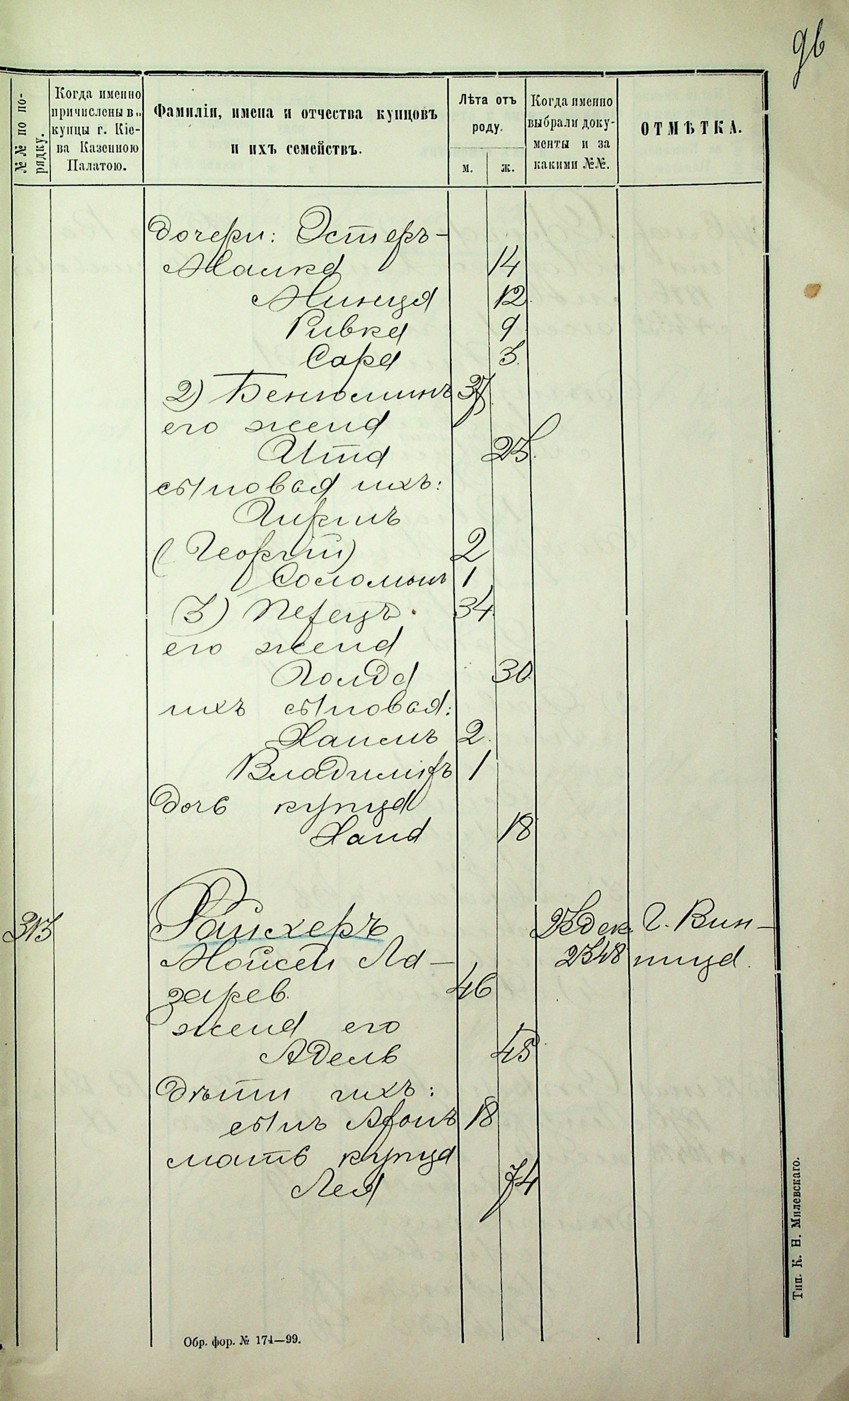 96
№№ по по-
рядку.
Когда именно
причислены в
купцы г. Кіе-
ва Казенною
Палатою.
Фамиліи, имена и отчества купцовъ
и ихъ семействъ.
Лѣта отъ
роду.
м. ж.
Когда именно
выбрали доку-
менты и за
какими №№.
ОТМѢТКА.
дочери: Эстеръ-
Малка 14
Минця 12
Ривка 9
Сара 3
2) Бенюминъ 37
его жена
Ита 25
сыновья ихъ:
Гиршъ
(Георгій) 2
Соломонъ 1
3) Перецъ 34
его жена
Голда 30
ихъ сыновья:
Хаимъ 2
Владиміръ 1
дочь купца
Хана 18
313 Райхеръ 23 дек. Г. Вин-
Мойсей Ла- 2348 ница.
зарев. 46
жена его
Адель 45
дѣти ихъ:
сынъ Аронъ 18
мать купца
Лея 74
Обр. фор. № 174—99.
Тип. К. Н. Милевскаго.